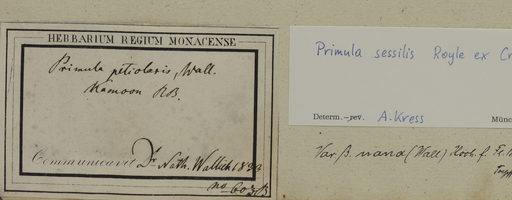 HERBARIUM REGIUM MONACENSE
Primula petiolaris, Wall.
Kamoon RB.
Communicavit Dr. Nath. Wallich 1832
no 603 B
Primula sessilis Royle ex Cr
Determ.-rev. A. Kress Münc
Var β. nana (Wall) Hook. f. Fl.